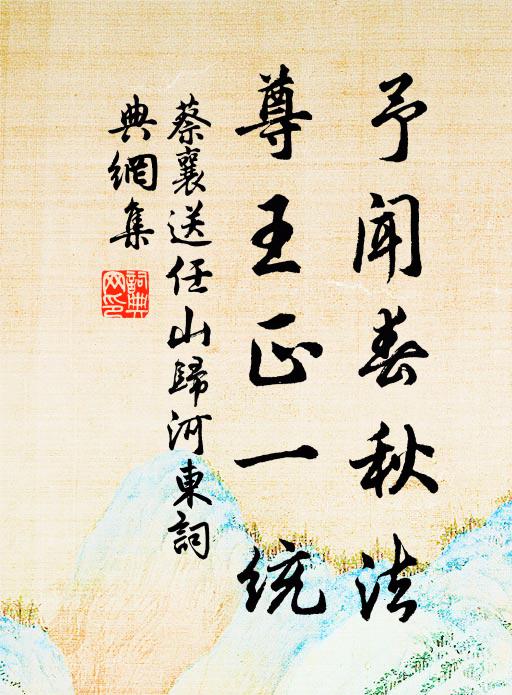 予闻春秋法
尊王正一统
蔡襄送任山歸河東詞
典網集
詞典網印